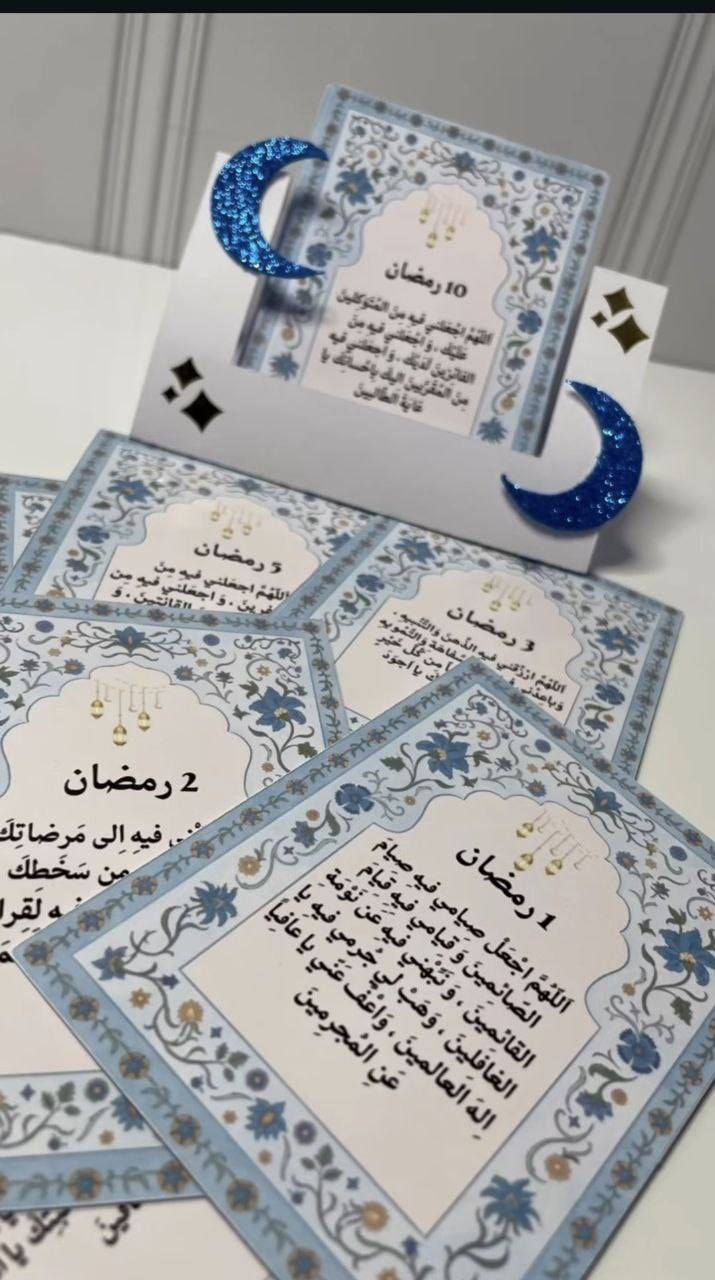 10 رمضان
اَللّهُمَّ اجْعَلني فيهِ مِنَ المُتَوَكِلينَ
عَلَيْكَ ، وَ اجْعَلني فيهِ مِنَ
الفائِزينَ لَدَيْكَ ، وَ اجعَلني فيه
مِنَ المُقَرَّبينَ اليكَ بِاِحْسانِكَ يا
غايَةَ الطّالبينَ
5 رمضان
اَللّهُمَّ اجعَلني فيهِ مِنَ
، وَ اجعَلني فيهِ مِن
القانِتينَ ، وَ
3 رمضان
اَللّهُمَّ ارْزُقني فيهِ الذِّهنَ وَالتَّنْبيهِ ،
وَباعِدْني السَّفاهَةِ وَالتَّمْويهِ
مِن كُلِّ خَيْرٍ
يا اجوَدَ
2 رمضان
فيهِ اِلى مَرضاتِكَ
مِن سَخَطِكَ
1 رمضان
اَللّهُمَّ اجْعَلْ صِيامي فيه صِيامَ
الصّائِمينَ وَ قيامي فيهِ قيامَ
القائِمينَ ، وَ نَبِّهْني فيهِ عَن نَوْمَةِ
الغافِلينَ ، وَهَبْ لي جُرمي فيهِ يا
اِلهَ العالَمينَ ، وَاعْفُ عَنّي يا عافِياً
عَنِ المُجرِمينَ